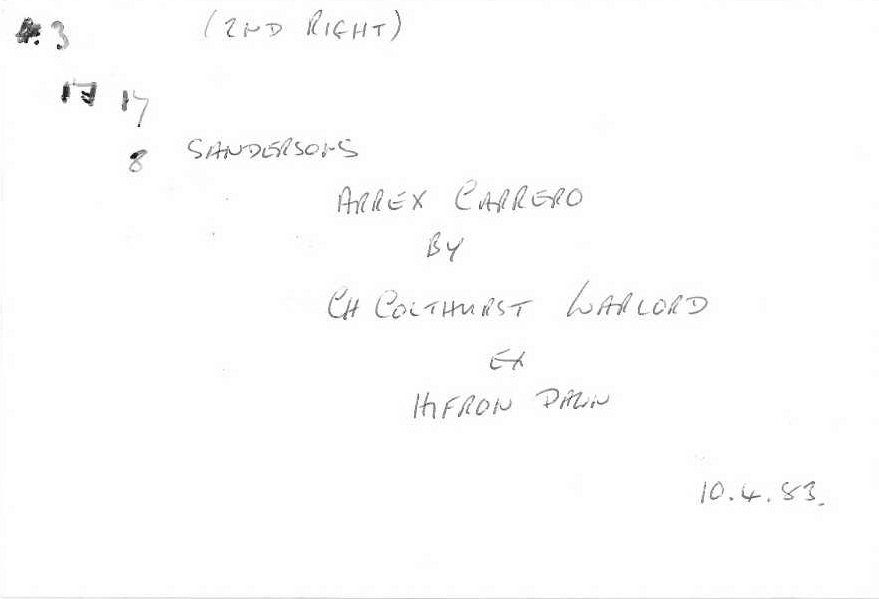 3 (2ND RIGHT)
17 17
8 SANDERSONS
ARREX CARRERO
BY
CH COLTHURST WARLORD
EX
HIFRON DAWN
10.4.83.